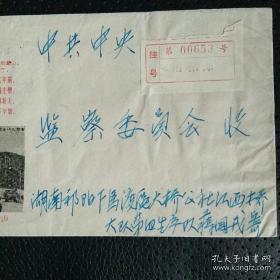 中共中央
挂号
第 00653 号
监察委员会 收
湖南祁阳下马渡区大桥公社江西桥
大队第四生产队蒋国成寄
山
孔夫子旧书网